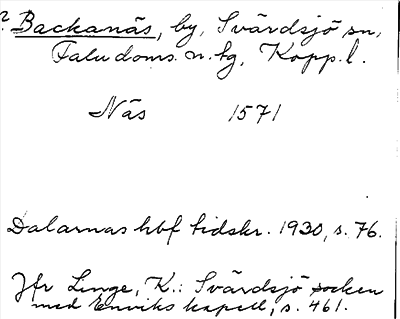 ? Backanäs, by, Svärdsjö sn,
Falu doms. n. tg, Kopp. l.
Näs 1571
Dalarnas hbf tidskr. 1930, s. 76.
Jfr Linge, K.: Svärdsjö socken
med Enviks kapell, s. 461.